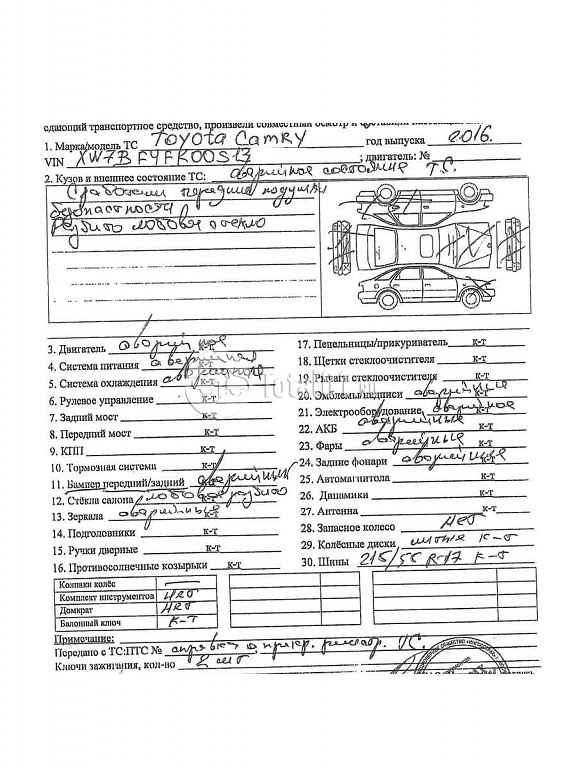 сдающий транспортное средство, произвели совместный осмотр и
1. Марка/модель ТС Toyota Camry год выпуска 2016.
VIN XW7BF4FK00S13 ; двигатель: №
2. Кузов и внешнее состояние ТС: аварийное состояние Т.С.
Сработали передние подушки
безопасности
разбито лобовое стекло
3. Двигатель аварийное к-т
4. Система питания аварийная к-т
5. Система охлаждения аварийное к-т
6. Рулевое управление к-т
7. Задний мост к-т
8. Передний мост к-т
9. КПП к-т
10. Тормозная система к-т
11. Бампер передний/задний аварийный к-т
12. Стёкла салона лобовое разбито
13. Зеркала аварийные к-т
14. Подголовники к-т
15. Ручки дверные к-т
16. Противосолнечные козырьки к-т
17. Пепельницы/прикуриватель к-т
18. Щетки стеклоочистителя к-т
19. Рычаги стеклоочистителя к-т
20. Эмблемы/надписи аварийные к-т
21. Электрооборудование аварийное к-т
22. АКБ аварийные к-т
23. Фары аварийные к-т
24. Задние фонари аварийные к-т
25. Автомагнитола к-т
26. Динамики к-т
27. Антенна к-т
28. Запасное колесо нет
29. Колёсные диски литые к-т
30. Шины 215/55 R-17 к-т
Колпаки колёс —
Комплект инструментов нет
Домкрат нет
Балонный ключ к-т
Примечание:
Передано с ТС:ПТС № справка о прекр. регистр. ТС.
Ключи зажигания, кол-во 2 шт